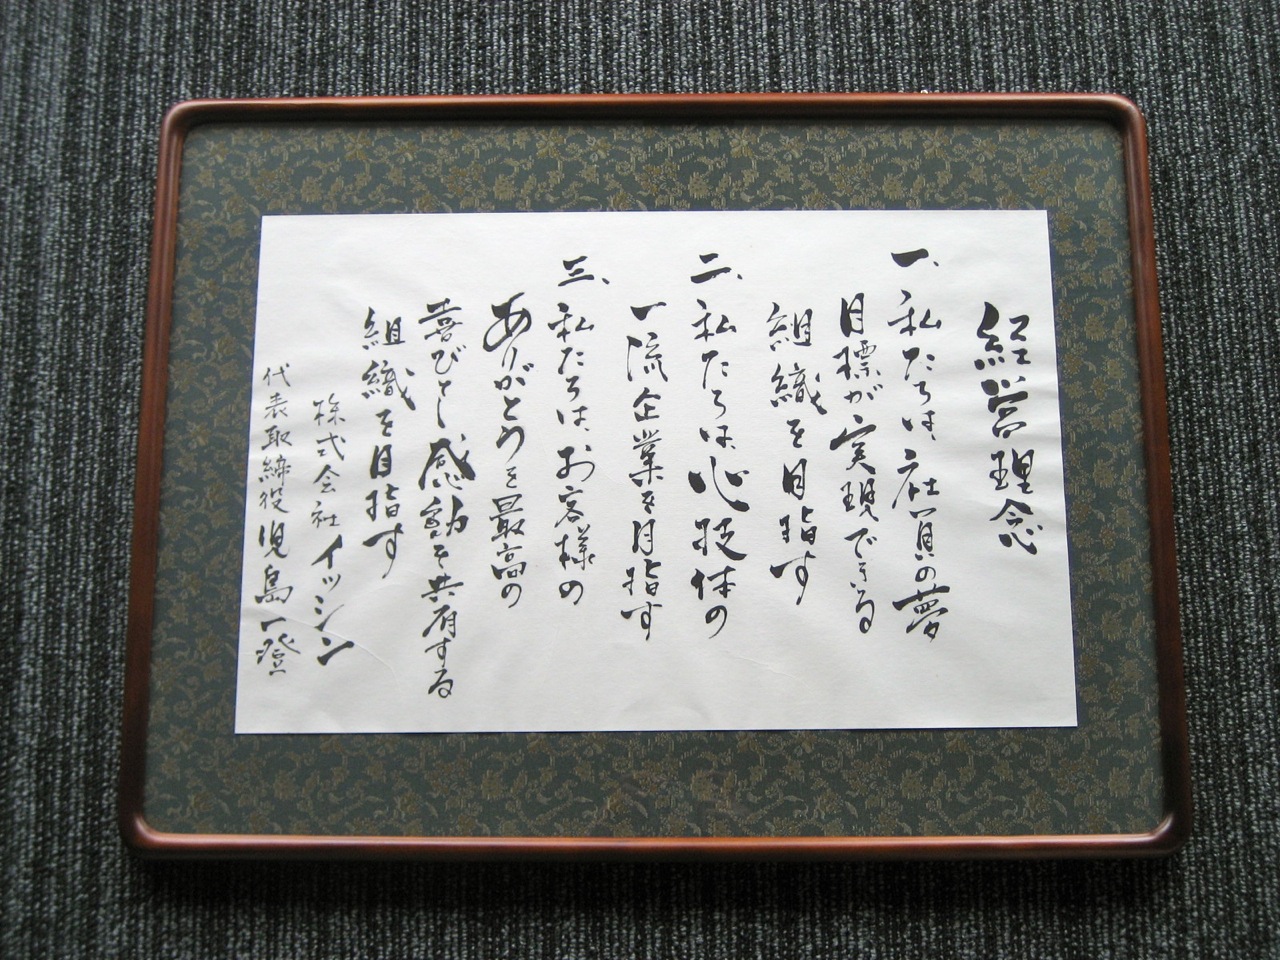 経営理念
一、私たちは、社員の夢
目標が実現できる
組織を目指す
二、私たちは、心技体の
一流企業を目指す
三、私たちは、お客様の
ありがとうを最高の
喜びとし感動を共有する
組織を目指す
株式会社イッシン
代表取締役児島一登